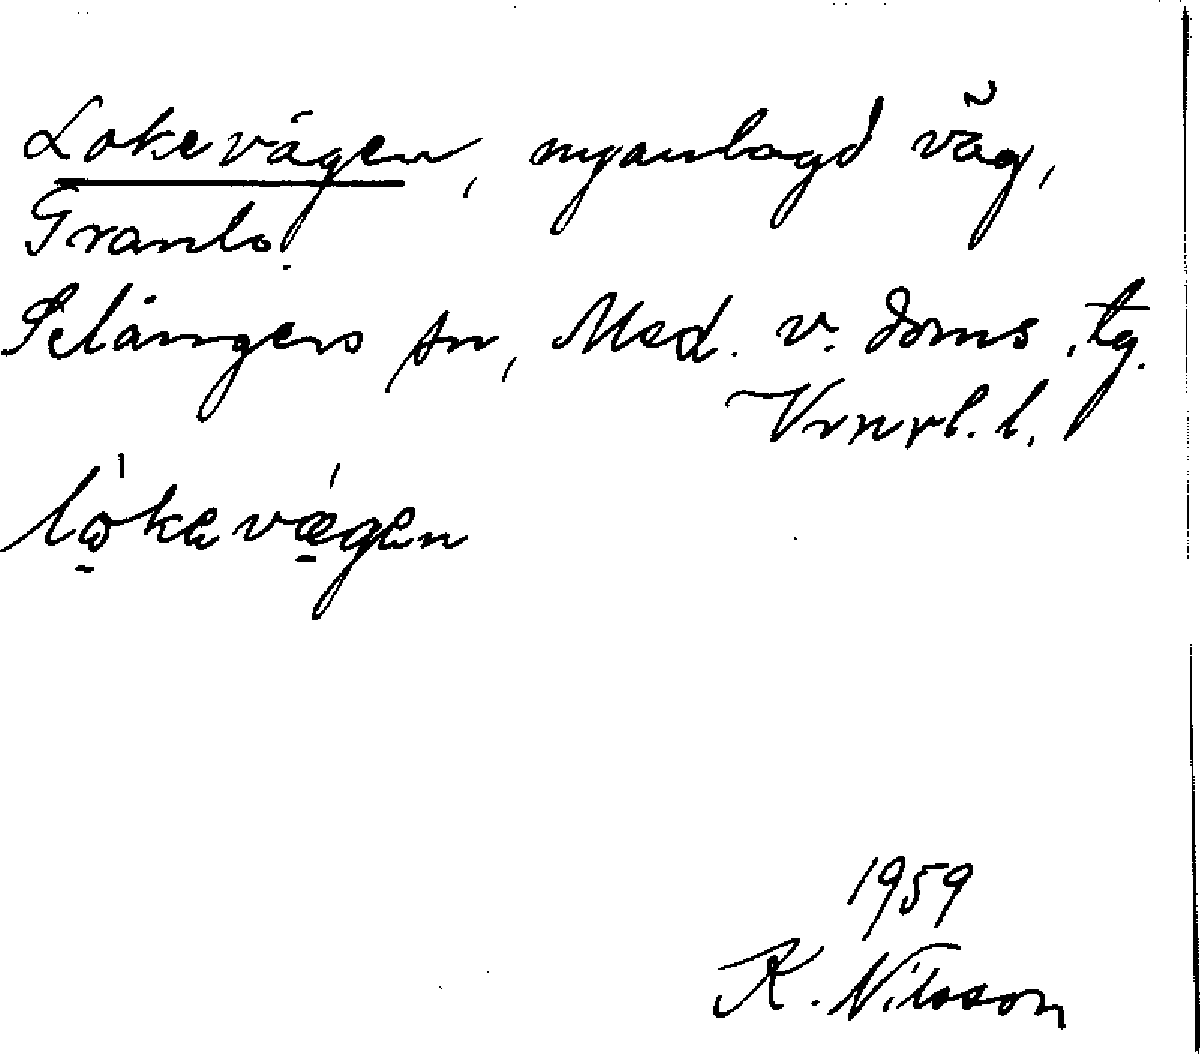 Lokevägen, nyanlagd väg,
Granlo.
Selångers sn, Med. v. doms. tg.
Vrnrl. l.
lo̱kevæ̱gen
1959
K. Nilsson